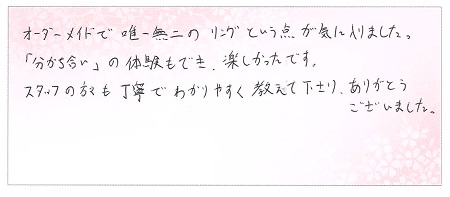 オーダーメイドで唯一無二のリングという点が気に入りました。
「分かち合い」の体験もでき、楽しかったです。
スタッフの方々も丁寧でわかりやすく教えて下さり、ありがとう
ございました。